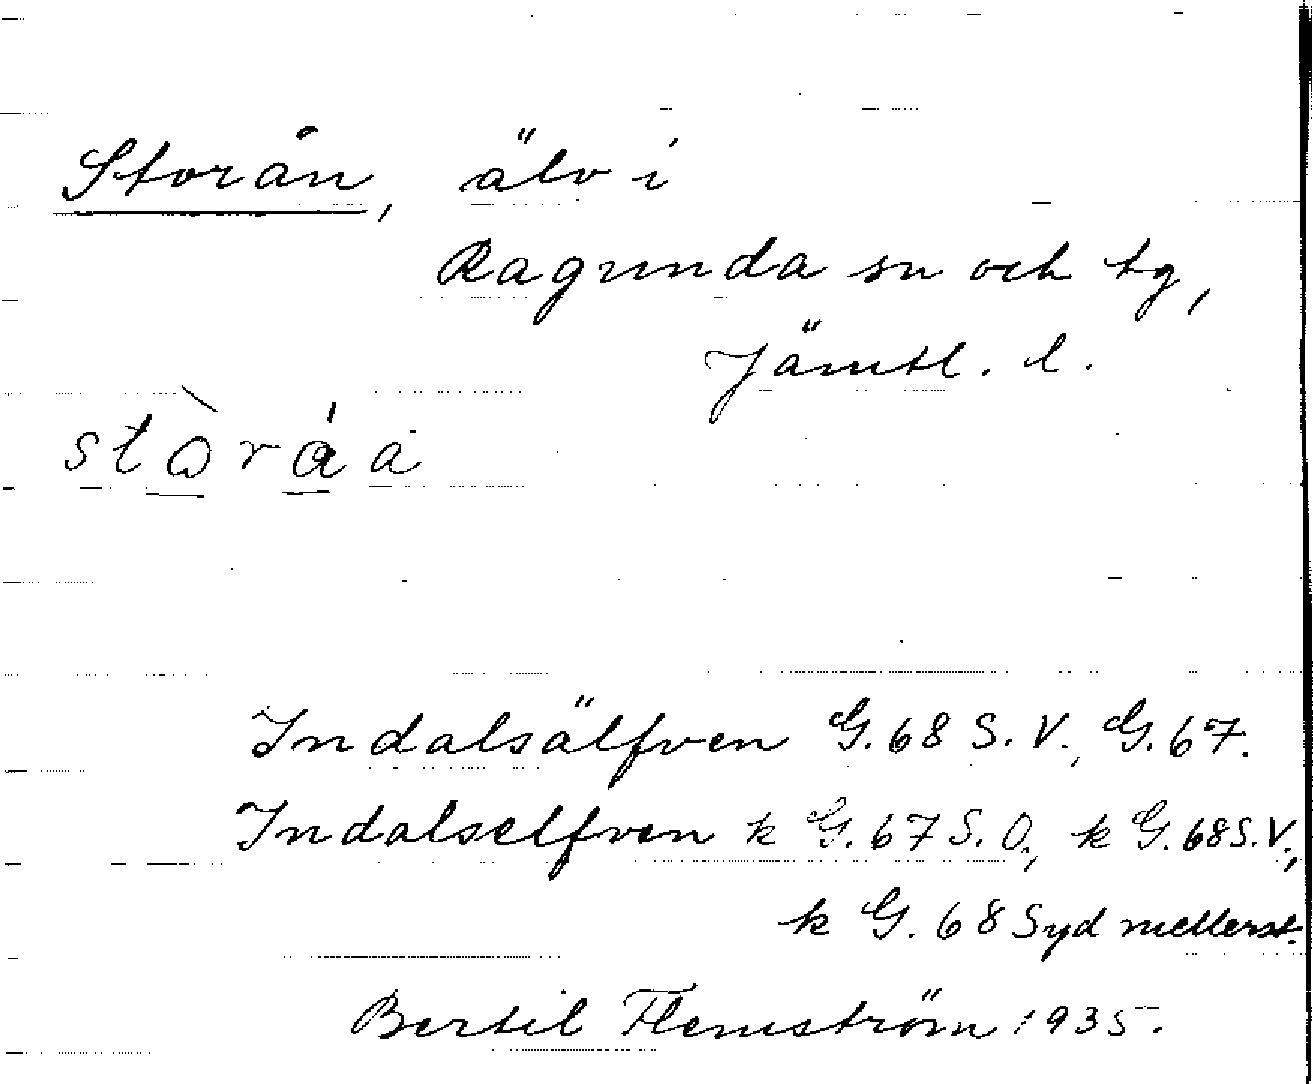 Storån, älv i
Ragunda sn och tg,
Jämtl. l.
stòráa
Indalsälfven G. 68 S. V., G. 67.
Indalselfven k G. 67 S. O., k G. 68 S. V.,
k G. 68 Syd mellerst.
Bertil Flemström 1935.